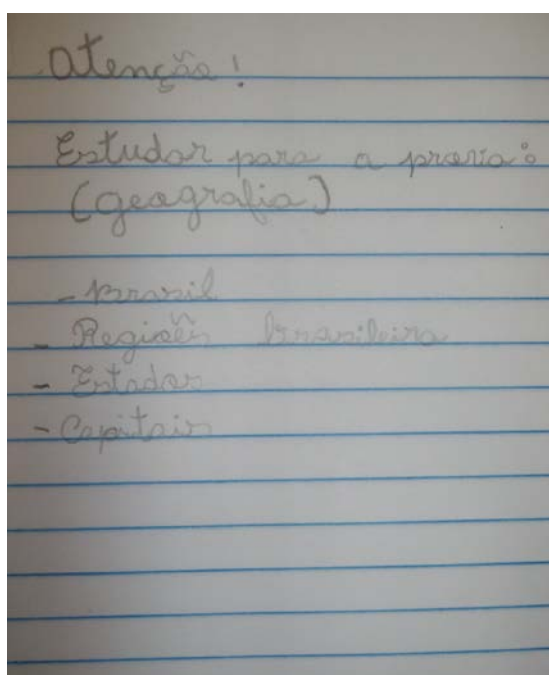 Atenção!
Estudar para a prova:
(geografia)
- Brasil
- Regiões brasileira
- Estados
- Capitais